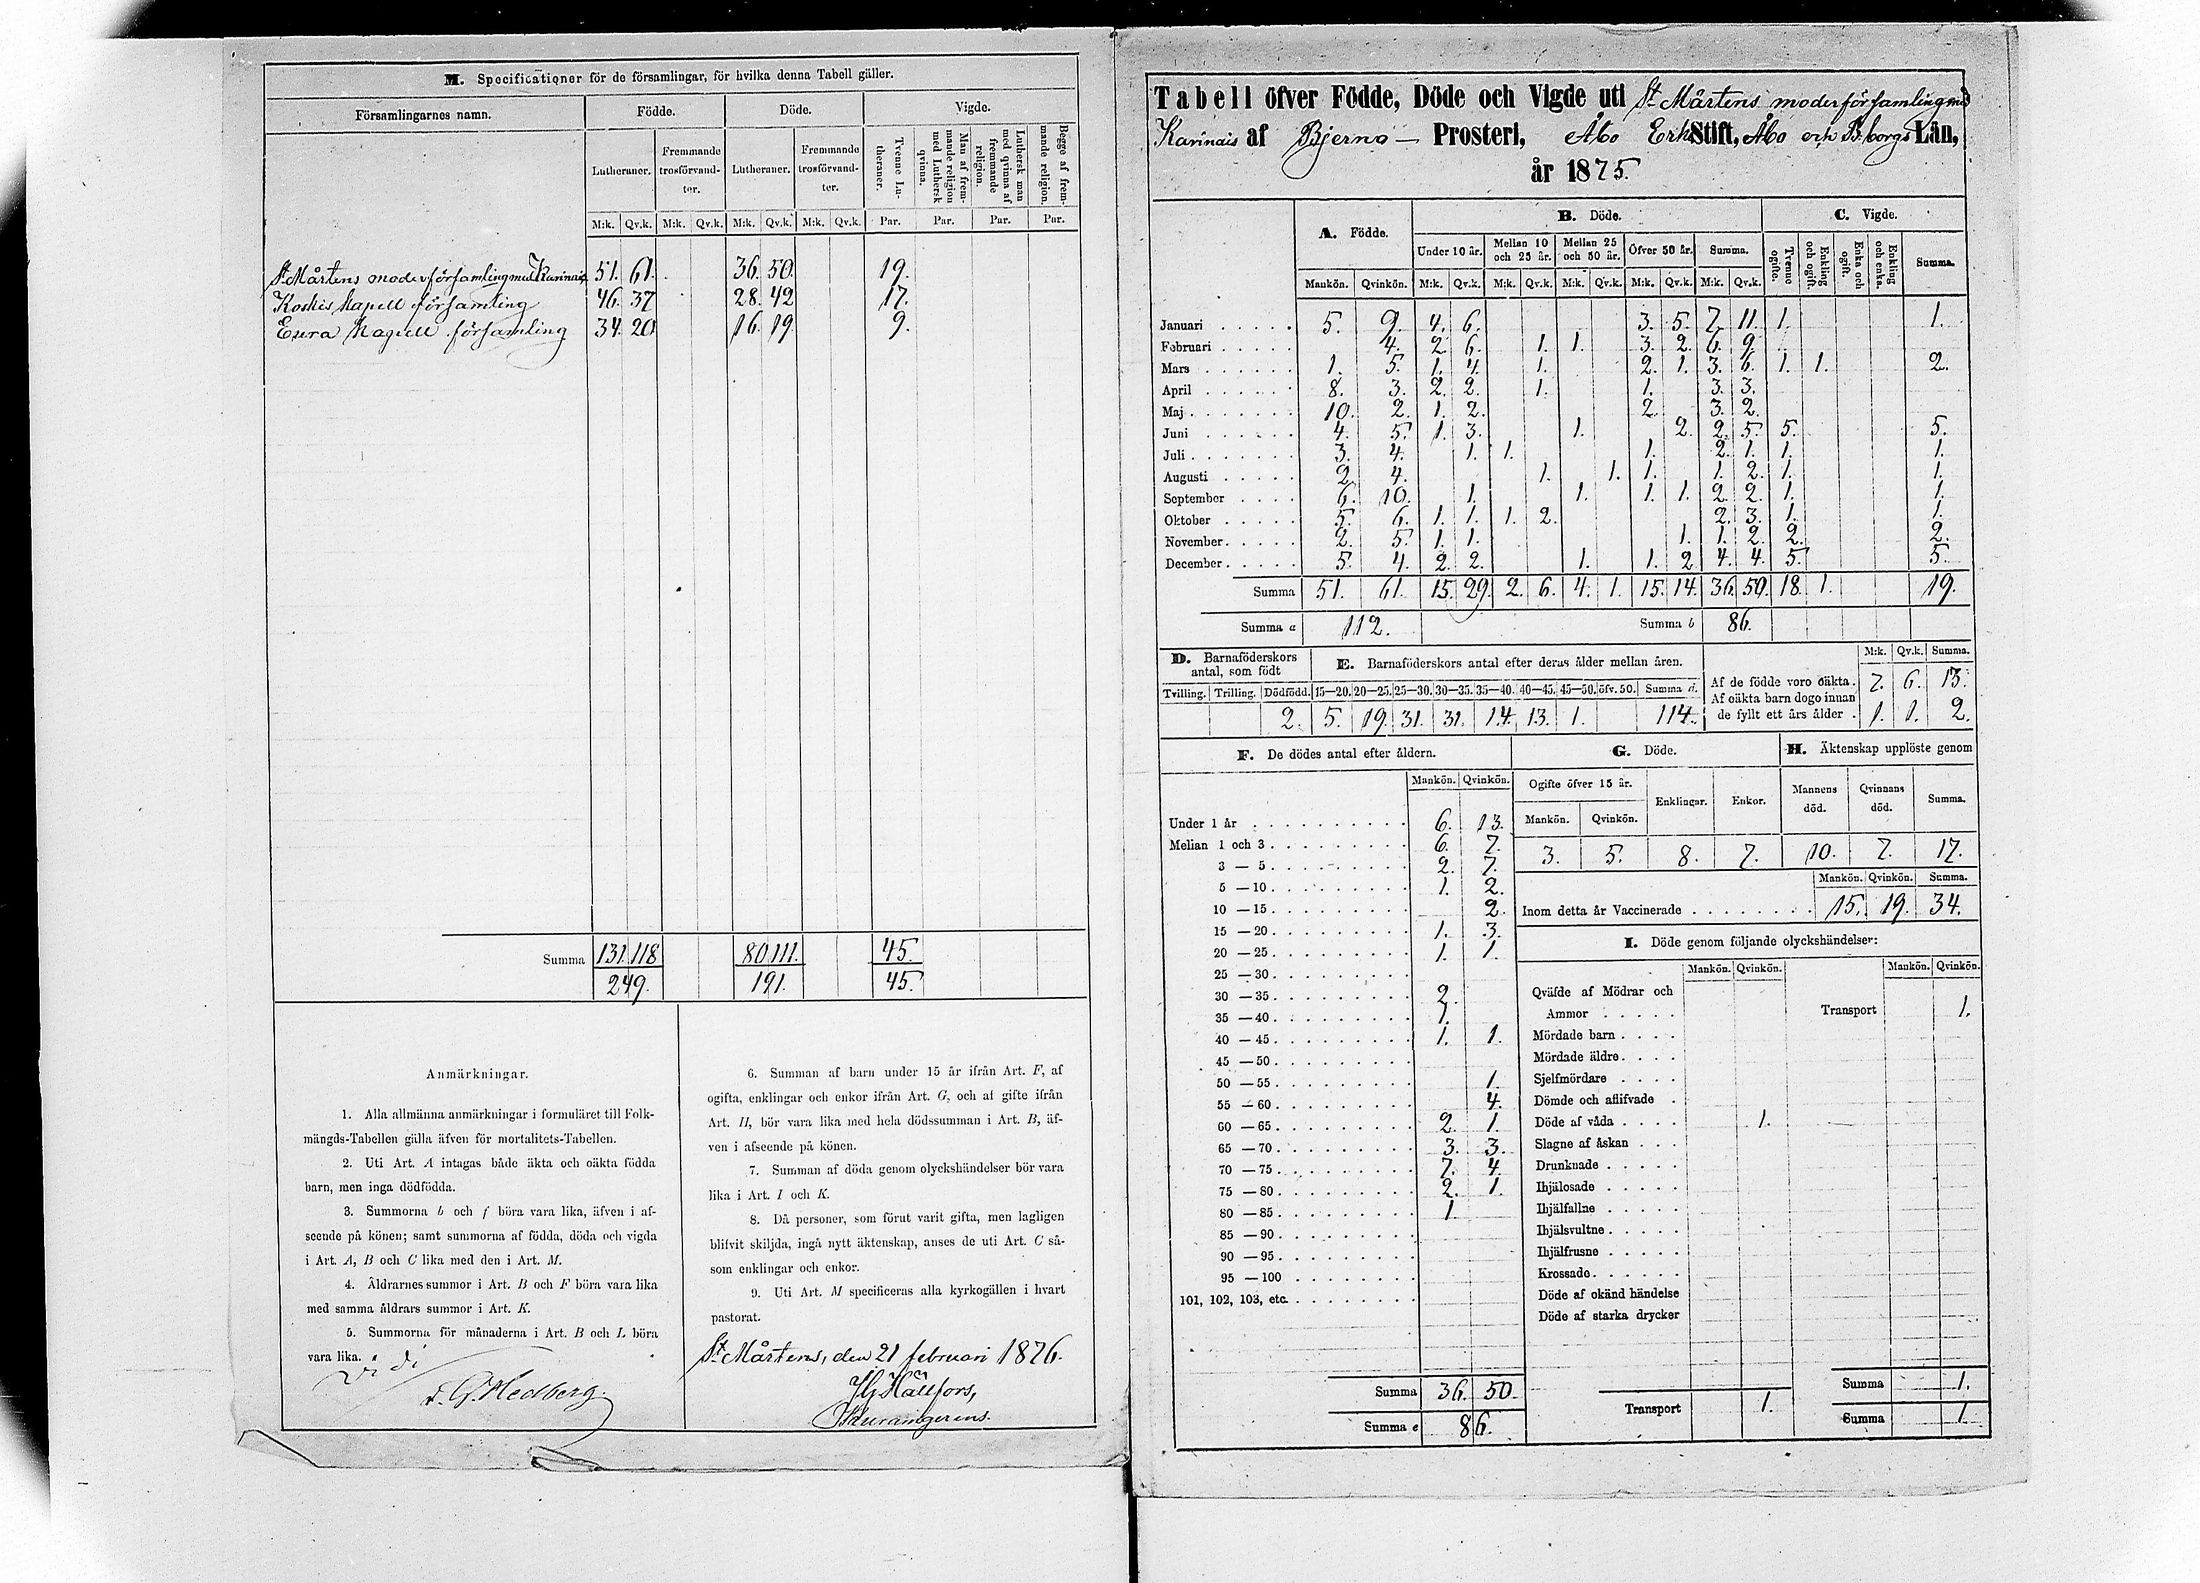 M. Specificationer för de församlingar, för hvilka denna Tabell gäller.
Församlingarnes namn. Födde. Döde. Vigde.
Lutheraner. Fremmande trosförvand- ter. Lutheraner. Fremmande trosförvand- ter. Tvenne Lu- theraner. Man af frem- mande religion med Luthersk qvinna. Luthersk man med qvinna af fremmande religion. Begge af frem- mande religion.
M:k. Qv.k. M:k. Qv.k. M:k. Qv.k. M:k. Qv.k. Par. Par. Par. Par.
St Mårtens moderförsamling med Karinais 51. 61. 36. 50. 19.
Koskis kapell församling 46. 37 28. 42 17.
Eura Kapell församling 34. 20 16. 19 9.
Summa 131 118 80 111. 45.
249. 191. 45.
Anmärkningar.
1. Alla allmänna anmärkningar i formuläret till Folk-
mängds-Tabellen gälla äfven för mortalitets-Tabellen.
2. Uti Art. A intagas både äkta och oäkta födda
barn, men inga dödfödda.
3. Summorna b och f böra vara lika, äfven i af-
seende på könen; samt summorna af födda, döda och vigda
i Art. A, B och C lika med den i Art. M.
4. Åldrarnes summor i Art. B och F böra vara lika
med samma åldrars summor i Art. K.
5. Summorna för månaderna i Art. B och L böra
vara lika.
G. Hedberg.
6. Summan af barn under 15 år ifrån Art. F, af
ogifta, enklingar och enkor ifrån Art. G, och af gifte ifrån
Art. H, bör vara lika med hela dödssumman i Art. B, äf-
ven i afseende på könen.
7. Summan af döda genom olyckshändelser bör vara
lika i Art. I och K.
8. Då personer, som förut varit gifta, men lagligen
blifvit skiljda, ingå nytt äktenskap, anses de uti Art. C så-
som enklingar och enkor.
9. Uti Art. M specificeras alla kyrkogällen i hvart
pastorat.
St Mårtens, den 21 februari 1876.
JG Hällfors,
Tabell öfver Födde, Döde och Vigde uti St Mårtens moderförsamling med
Karinais af Bjerno — Prosteri, Åbo Erke Stift, Åbo och B:borgs Län,
år 1875.
A. Födde. B. Döde. C. Vigde.
Under 10 år. Mellan 10 och 25 år. Mellan 25 och 50 år. Öfver 50 år. Summa. Tvenne ogifte. Enkling och ogift. Enka och ogift. Enkling och enka. Summa.
Mankön. Qvinkön. M:k. Qv.k. M:k. Qv.k. M:k. Qv.k. M:k. Qv.k. M:k. Qv.k.
Januari 5. 9. 4. 6. 3. 5. 7. 11. 1. 1.
Februari 4. 2. 6. 1. 1. 3. 2. 6. 9.
Mars 1. 5. 1. 4. 1. 2. 1. 3. 6. 1. 1. 2.
April 8. 3. 2. 2. 1. 1. 3. 3.
Maj 10. 2. 1. 2. 2. 3. 2.
Juni 4. 5. 1. 3. 1. 2. 2. 5. 5. 5.
Juli 3. 4. 1. 1. 1. 2. 1. 1. 1.
Augusti 2. 4. 1. 1. 1. 1. 2. 1. 1.
September 6. 10. 1. 1. 1. 1. 2. 2. 1. 1.
Oktober 5. 6. 1. 1. 1. 2. 2. 3. 1. 1.
November 2. 5. 1. 1. 1. 1. 2. 2. 2.
December 5. 4. 2. 2. 1. 1. 2 4. 4. 5. 5.
Summa 51. 61. 15. 29. 2. 6. 4. 1. 15. 14. 36. 50. 18. 1. 19.
Summa a 112. Summa b 86.
D. Barnaföderskors antal, som födt
E. Barnaföderskors antal efter deras ålder mellan åren.
M:k. Qv.k. Summa.
Tvilling. Trilling. Dödfödd. 15—20. 20—25. 25—30. 30—35. 35—40. 40—45. 45—50. öfv. 50. Summa d.
2. 5. 19. 31. 31. 14. 13. 1. 114.
Af de födde voro oäkta. 7. 6. 13.
Af oäkta barn dogo innan
de fyllt ett års ålder . 1. 1. 2.
F. De dödes antal efter åldern.
Mankön. Qvinkön.
Under 1 år 6. 13.
Mellan 1 och 3 6. 7.
3 — 5 2. 7.
5 — 10 1. 2.
10 — 15 2.
15 — 20 1. 3.
20 — 25 1. 1.
25 — 30
30 — 35 2.
35 — 40 1.
40 — 45 1. 1.
45 — 50
50 — 55 1.
55 — 60 4.
60 — 65 2. 1.
65 — 70 3. 3.
70 — 75 7. 4.
75 — 80 2. 1.
80 — 85 1
85 — 90
90 — 95
95 — 100
101, 102, 103, etc.
Summa 36. 50.
Summa e 86.
G. Döde.
Ogifte öfver 15 år. Enklingar. Enkor.
Mankön. Qvinkön.
3. 5. 8. 7.
H. Äktenskap upplöste genom
Mannens död. Qvinnans död. Summa.
10. 7. 17.
Mankön. Qvinkön. Summa.
Inom detta år Vaccinerade 15. 19. 34.
I. Döde genom följande olyckshändelser:
Mankön. Qvinkön. Mankön. Qvinkön.
Qväfde af Mödrar och
Ammor
Transport 1.
Mördade barn
Mördade äldre
Sjelfmördare
Dömde och aflifvade
Döde af våda 1.
Slagne af åskan
Drunknade
Ihjälosade
Ihjälfallne
Ihjälsvultne
Ihjälfrusne
Krossade
Döde af okänd händelse
Döde af starka drycker
Transport 1.
Summa 1.
Summa 1